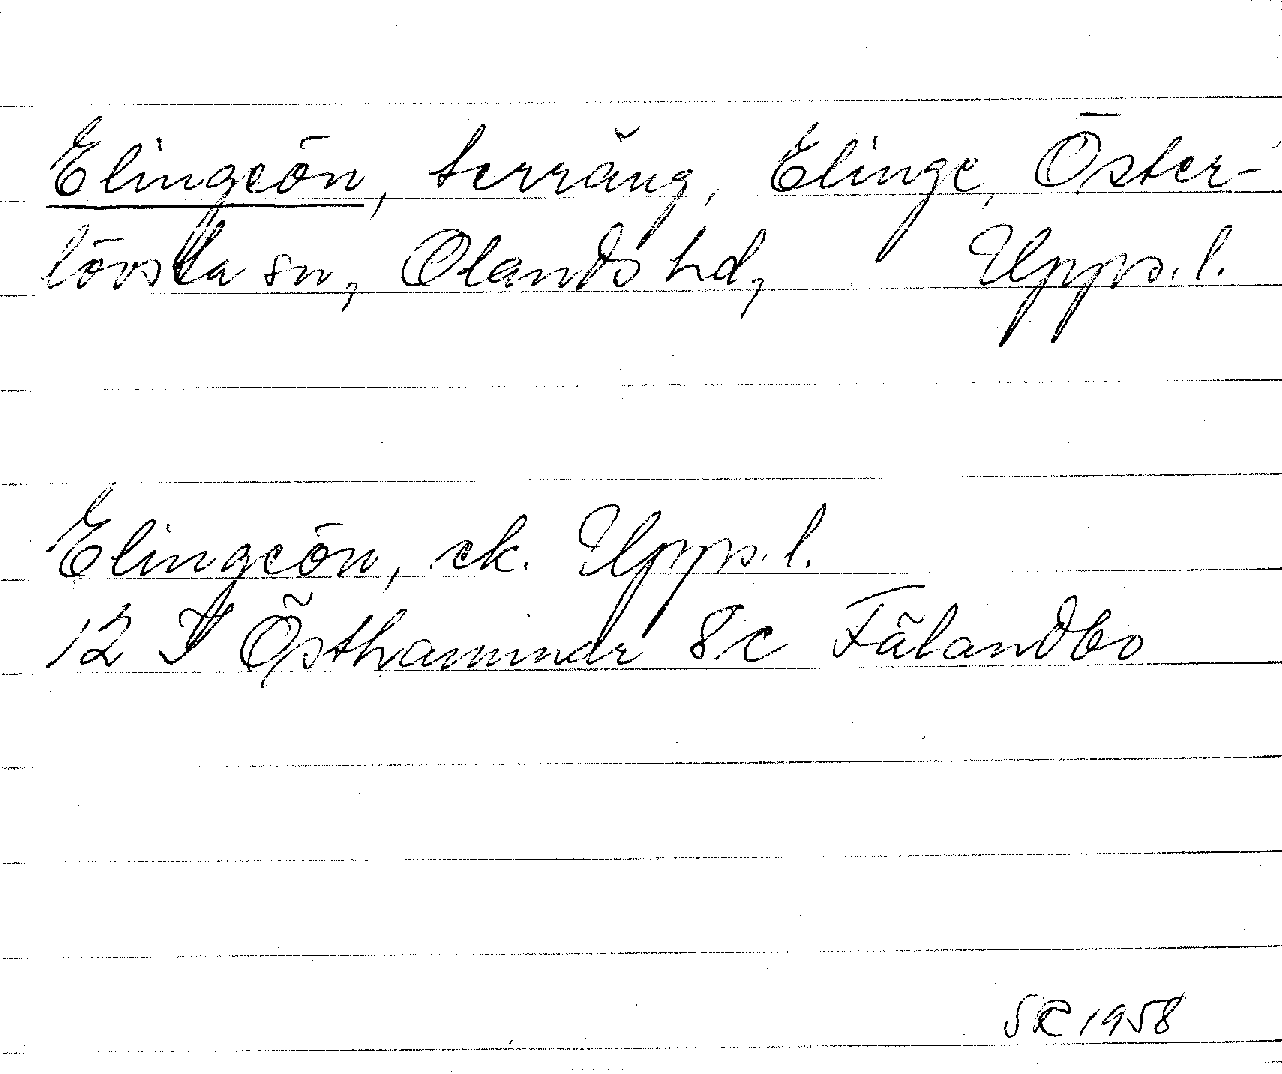 Elingeön, terräng, Elinge, Öster-
lövsta sn, Olands hd, Upps. l.
Elingeön, ek. Upps. l.
12 I Östhammar 8c Fälandbo
SR 1958